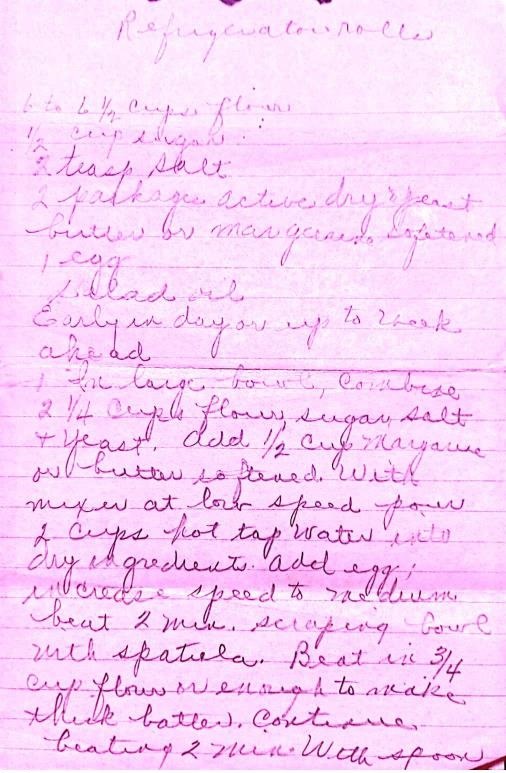 Refrigerator rolls
6 to 6 1/2 cups flour
1/2 cup sugar
2 teasp salt
2 packages active dry yeast
butter or margarine softened
1 egg
salad oil
Early in day or up to week
ahead
1 In large bowl, combine
2 1/4 cups flour, sugar, salt
+ yeast. add 1/2 cup margarine
or butter softened. With
mixer at low speed pour
2 cups hot tap water into
dry ingredients. add egg;
increase speed to medium
beat 2 min. scraping bowl
with spatula. Beat in 3/4
cup flour or enough to make
thick batter. Continue
beating 2 min. With spoon